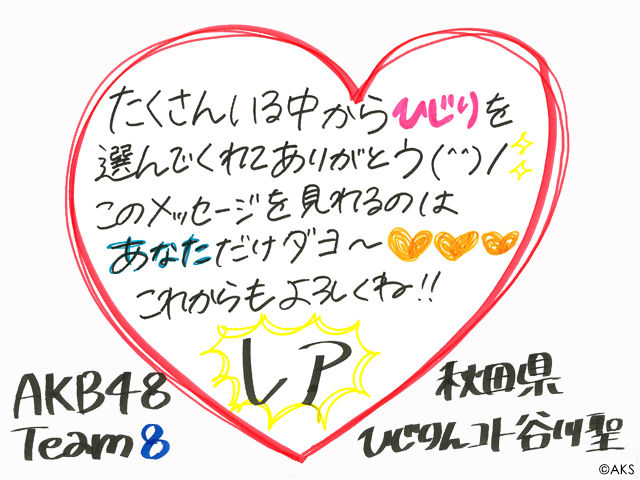 たくさんいる中からひじりを
選んでくれてありがとう(^^)/
このメッセージを見れるのは
あなただけダヨ〜
これからもよろしくね!!
レア
AKB48
Team8
秋田県
ひじりんコト谷川聖
©AKS